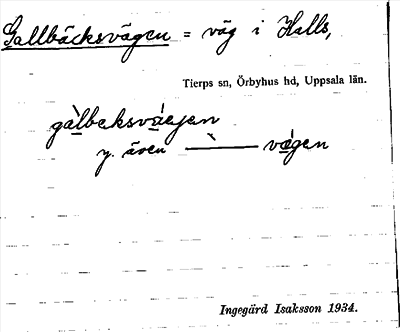 Gallbäcksvägen = väg i Halls,
Tierps sn, Örbyhus hd, Uppsala län.
gàlbeksvæ̀jen
y. även ——— vægen
Ingegärd Isaksson 1934.